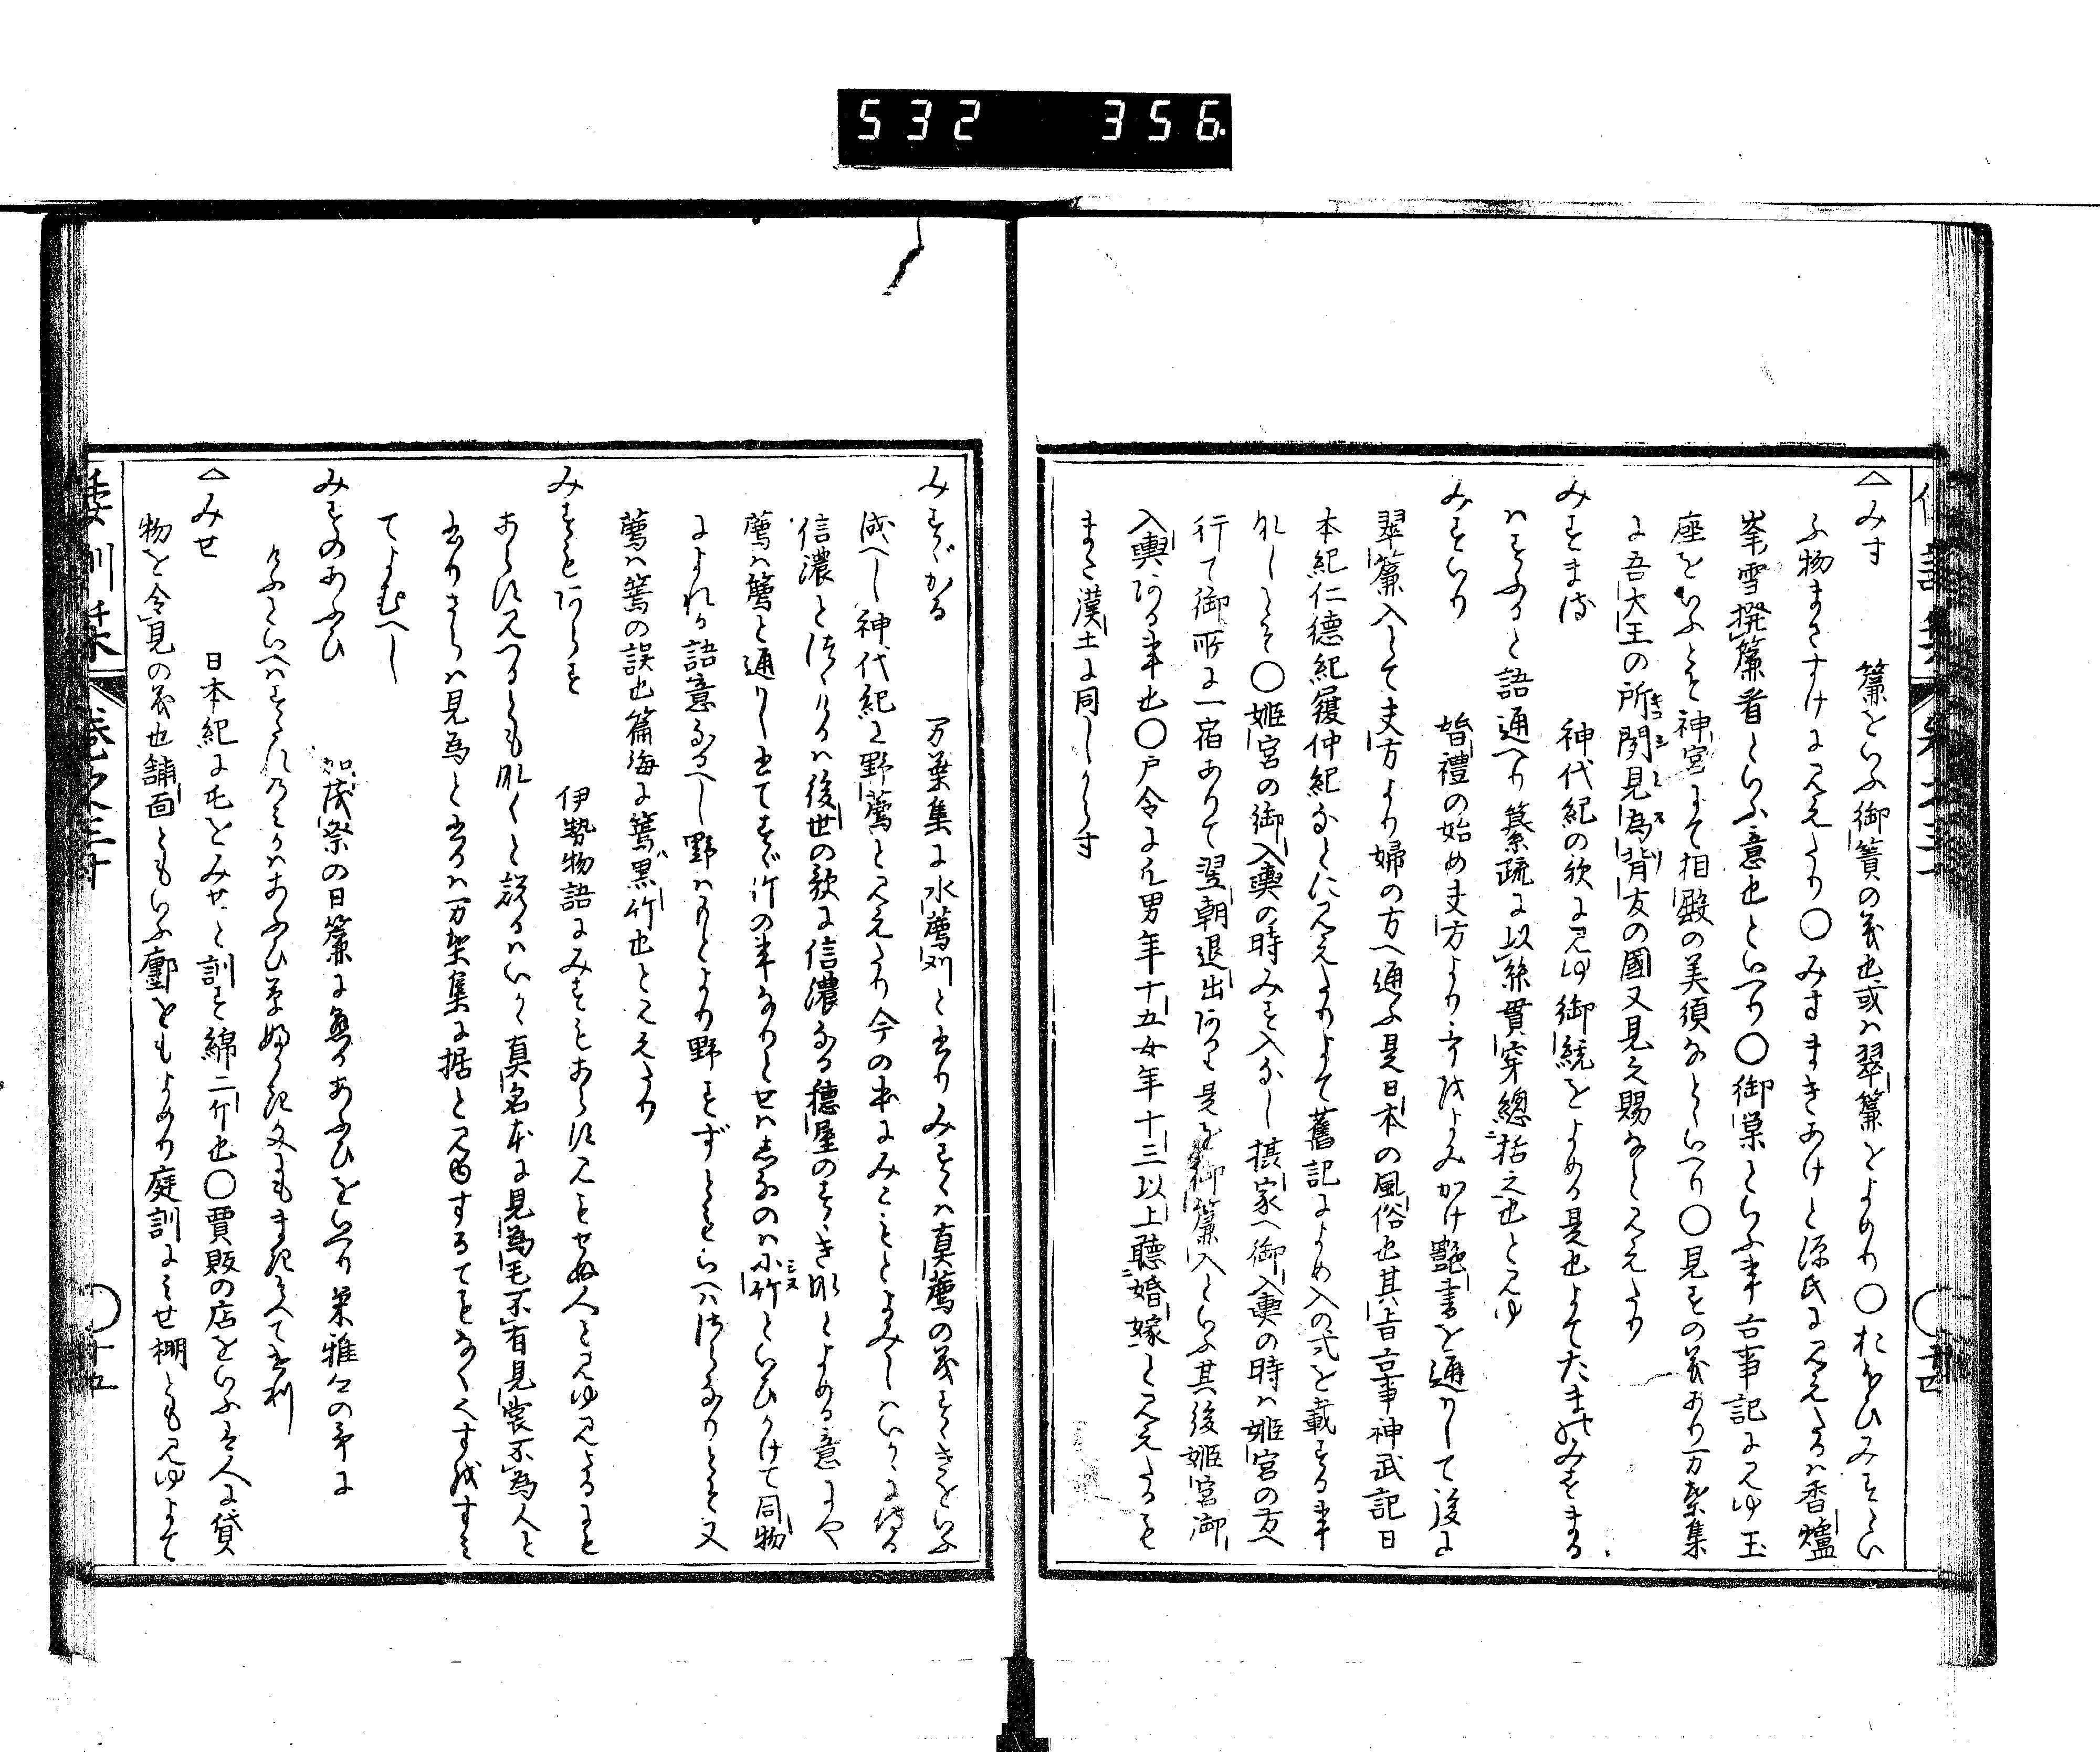 532 356
△みす 簾をいふ御簀の義也或ハ翠簾をよめり〇おほひみすとい
ふ物まさすけに見えたり〇みすまきあけと源氏に見えたるハ香爐
峯雪撥簾看といふ意也といへり〇御巣といふ事古事記に見ゆ玉
座をいふとそ神宮にて相殿の美須なといへり〇見すの義あり万葉集
に吾大王の所聞見為背友の國又見之賜なと見えたり
みすまる 神代紀の歌に見ゆ御統をよめる是也よてたまのみすまる
ハすふると語通へり纂疏に以絲貫穿總括之也と見ゆ
みすいり 婚禮の始め夫方より哥をよみかけ艶書を通ハして後に
翠簾入とて夫方より婦の方へ通ふ是日本の風俗也其旨古事神武記日
本紀仁徳紀履仲紀なとに見えたりよて舊記によめ入の式を載する事
なしとそ〇姫宮の御入輿の時みす入なし摂家へ御入輿の時ハ姫宮の方へ
行て御所に一宿ありて翌朝退出あり是を御簾入といふ其後姫宮御
入輿ある事也〇戸令に凡男年十五女年十三以上聽婚嫁と見えたるを
また漢土に同しからす
みすゞかる 万葉集に水薦刈と書りみすゝハ真薦の義すゝきをいふ
成へし神代紀に野薦と見えたり今の本にみこもとよみしハいかゝに侍る
信濃とつゝけるハ後世の歌に信濃なる穂屋のすゝき也とよめる意にや
薦ハ篶と通ハし書てすゞ竹の事なりとせハしなのハ小竹といひかけて同物
によれる語意なるへし野ハもとより野すゞともいへハつゝくなりとそ又
薦ハ篶の誤也篇海に篶黒竹也と見えたり
みすもあらす 伊勢物語にみすもあらす見もせぬ人と見ゆ見るにも
あらす見さるにも非すと説るハいかゝ真名本に見為毛不有見裳不為人と
書りさらハ見為と書るハ万葉集に据と見ゆするてをなくへす哉すミ
てよむへし
みすのあふひ 加茂祭の日簾に懸るあふひをいへり栄雅公の哥に
けふといへハすたれのミかハあふひ草
△みせ 日本紀に屯をみせと訓す綿二斤也〇賈販の店をいふも人に貨
物を令見の義也舗面ともいふ鄽をもよめり庭訓にミせ棚とも見ゆよて
倭訓栞 巻之三十 〇十五